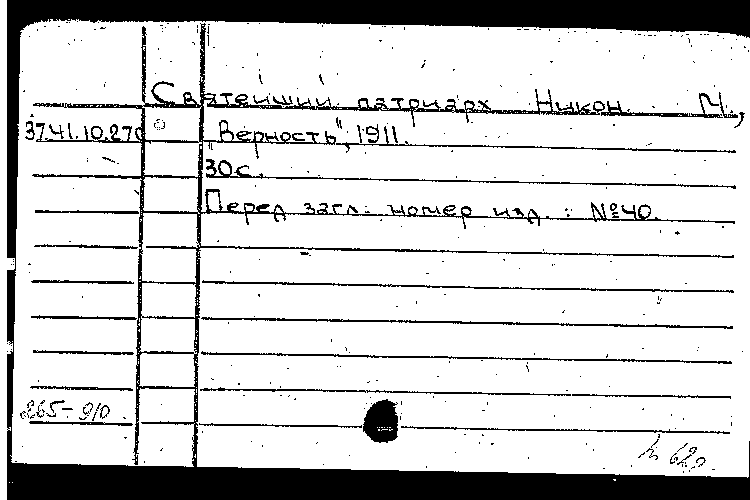 Святейший патриарх Никон. М.,
37.41.10.270 "Верность", 1911.
30с.
Перед загл.: номер изд.: №40.
265-910